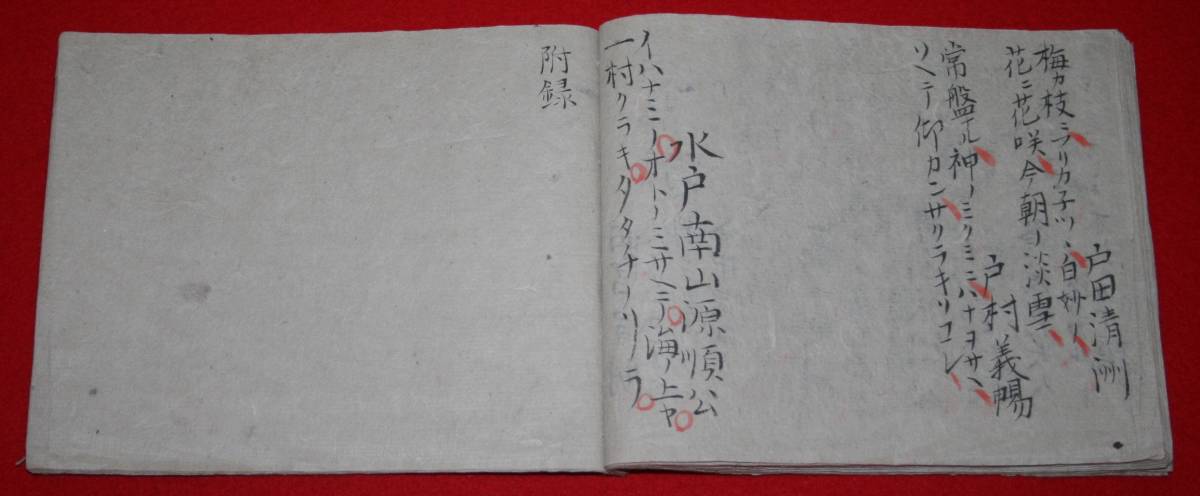 戸田清洲
梅カ枝ニフリカ子ツヽ白妙ノ
花ニ花咲今朝ノ淡雪
戸村義暢
常盤ナル神ノミクミニハナヲサヘ
ソヘテ仰カンサクラキリコレ
水戸南山源順公
イハナミノオトノミサヘテ海ノ上ヤ
一村クラキ
附録